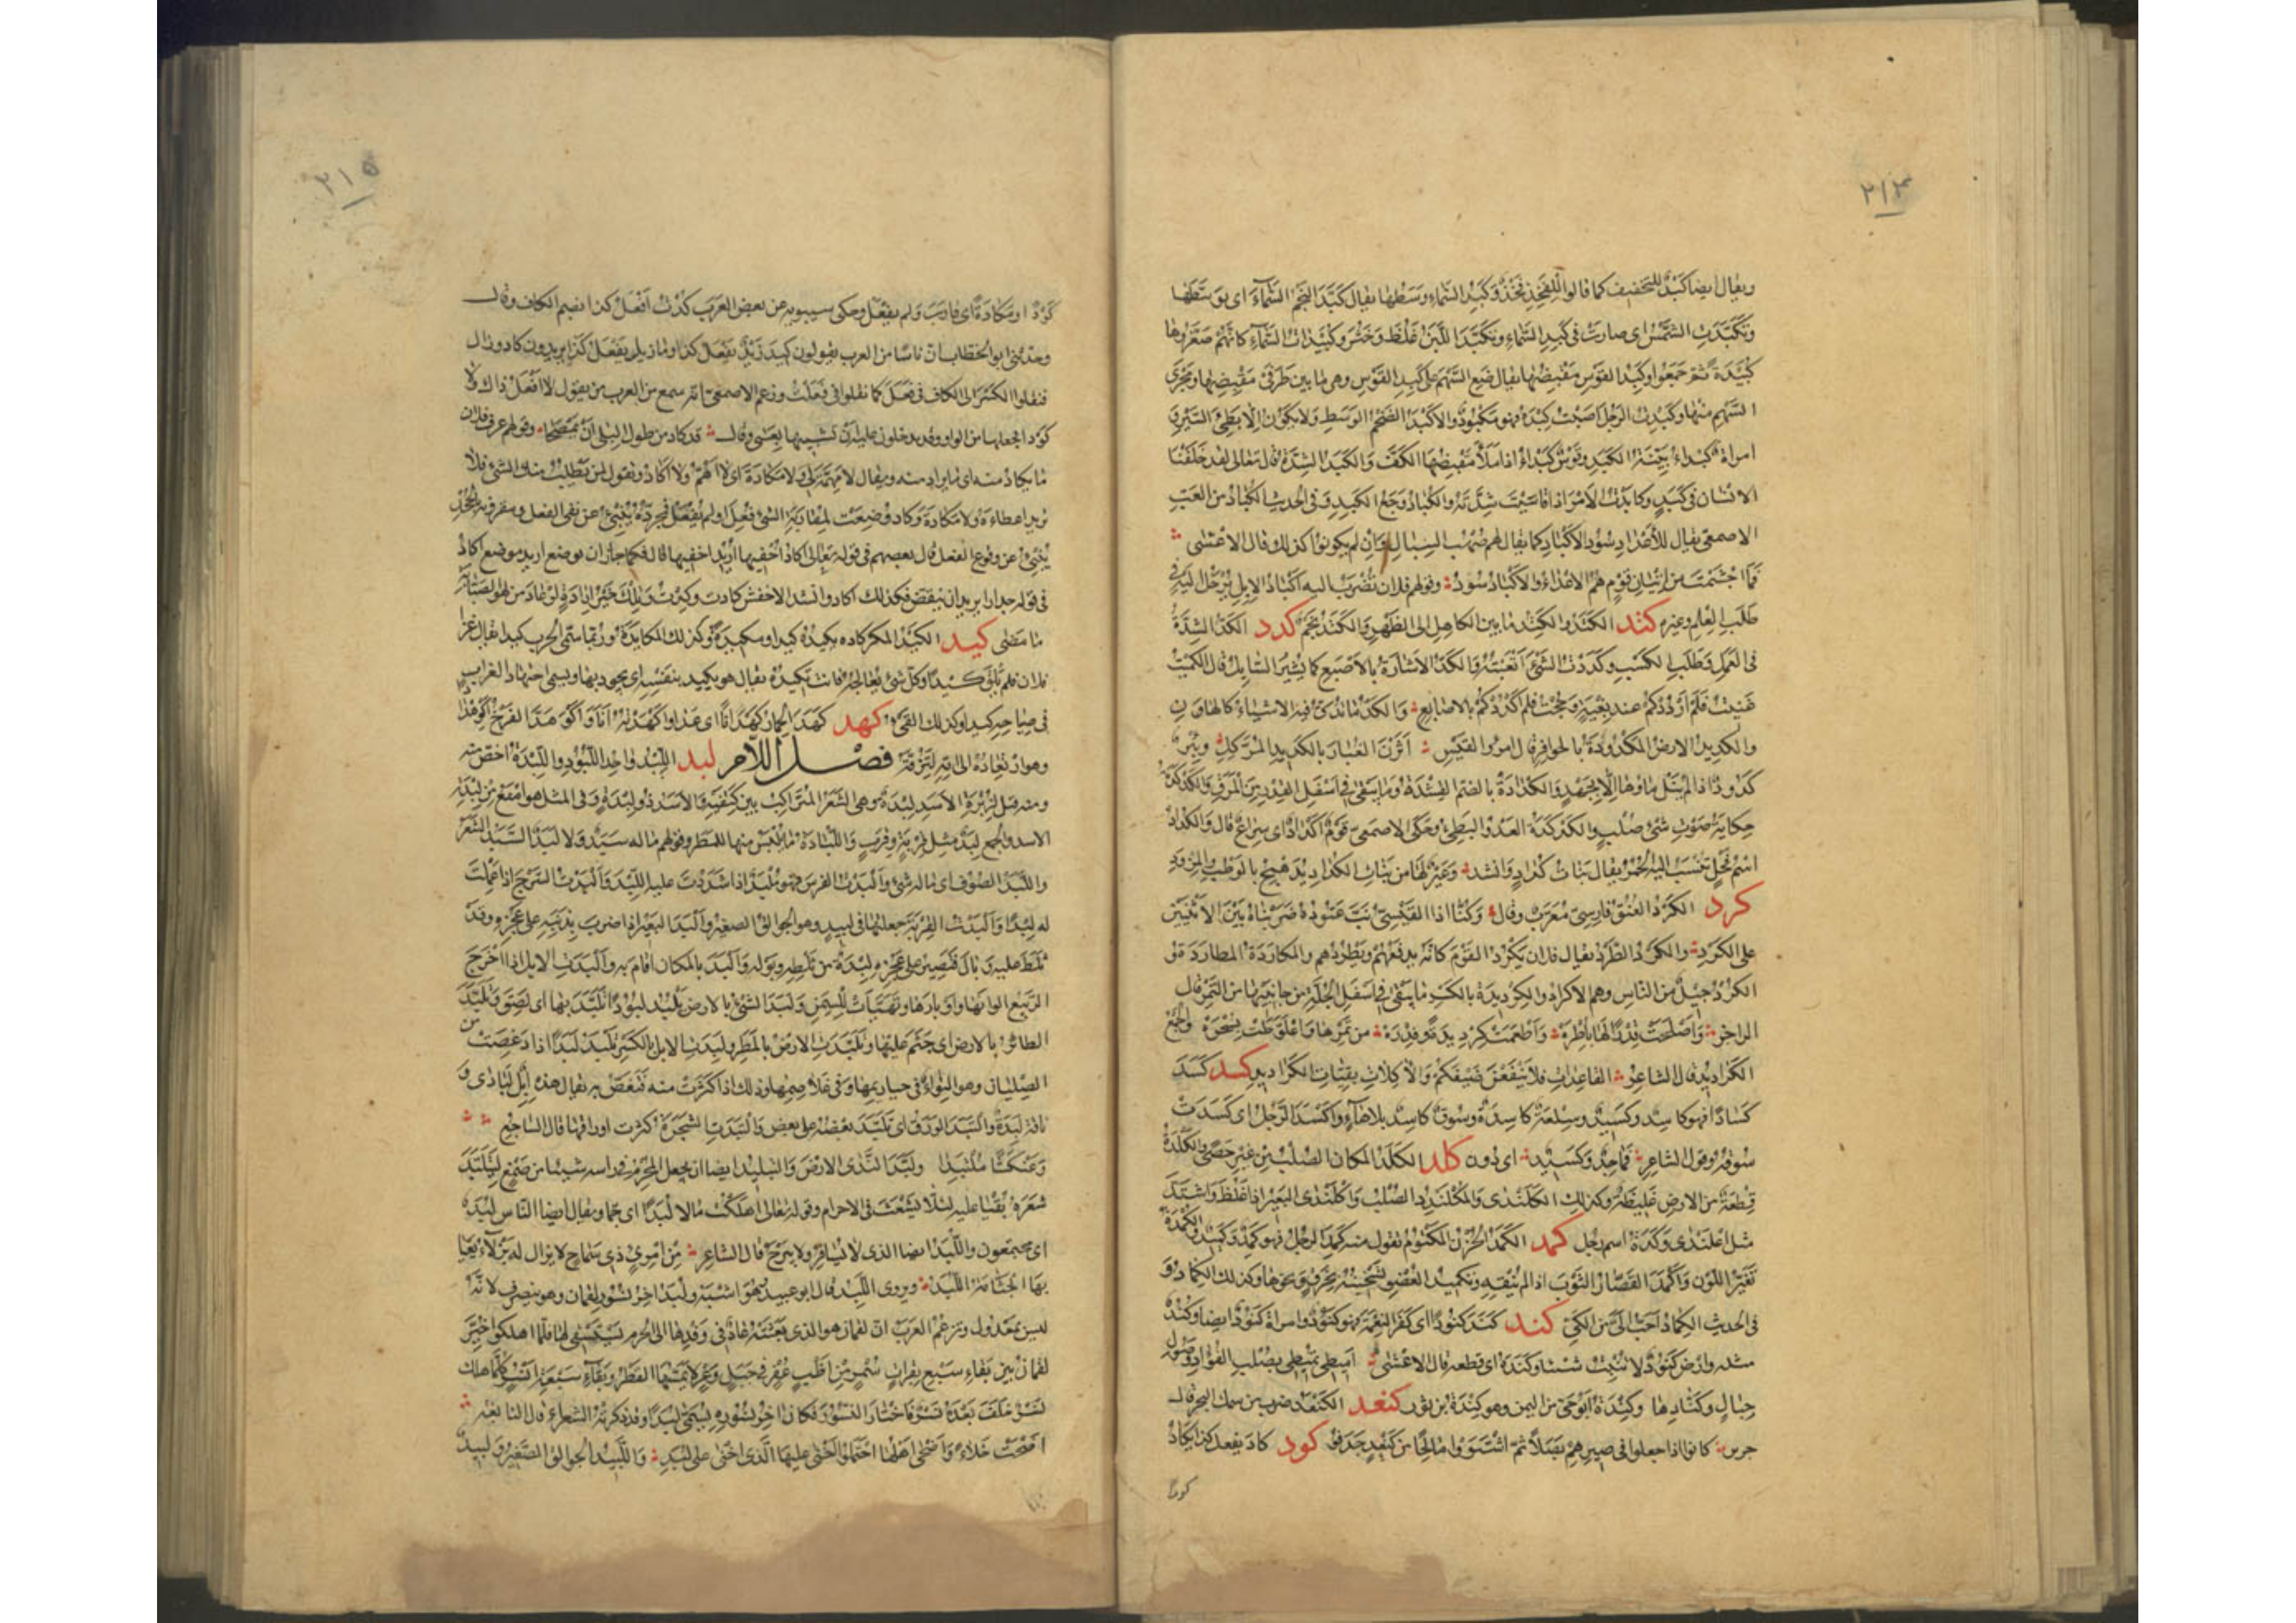 ٢١٤
ويقال ايضا كَبْدٌ للتخفيف كما قالوا للفَخِذ فَخْذٌ وكبد السماء وسطها يقال كَبَّد النجم السماءَ اى توسّطها
وتكبّدت الشمس اى صارت فى كبد السماء وتكبّد اللبن غلظ وخثر وكبيدات السماء كانهم صغّروها
كبيدة ثم جمعوا وكبد القوس مقبضها يقال ضع السهم على كبد القوس وهى ما بين طرفى مقبضها ومجرى
السهم منها وكبدت الرجل اصبت كبده فهو مكبود والاكبد الضخم الوسط ولا يكون الا بطئ السير و
امراة كبداء بيّنة الكبد وقوس كبداء اذا ملأ مقبضها الكف والكبد الشدة قال تعالى لقد خلقنا
الانسان فى كبد وكابدت الامر اذا قاسيت شدته والكباد وجع الكبد وفى الحديث الكباد من العبّ
الاصمعى يقال للأعداء سود الاكباد كما يقال لهم صهب السبال وان لم يكونوا كذلك وقال الاعشى
فما اجشمت من اتيان قوم هم الاعداء والاكباد سود وقولهم فلان تضرب اليه اكباد الابل اى يرحل اليه فى
طلب العلم وغيره كتد الكَتَدُ والكَتِد ما بين الكاهل الى الظهر والكتد نجم كدد الكدّ الشدة
فى العمل وطلب الكسب وكددت الشئ اتعبته والكد الاشارة بالاصبع كما يشير السائل قال الكميت
غنيت فلم اردُدكم عند بغية وحجت فلم اكددكم بالاصابع والكد ما يدق فيه الاشياء كالهاون
والكديد الارض المكدودة بالحوافر قال امرؤ القيس اثرن الغبار بالكديد المركّل وبئر
كدود اذا لم ينل ماؤها الا بجهد والكدادة بالضم القشدة وما يبقى فى اسفل القدر من المرق والكدكدة
حكاية صوت شئ صلب والكدكدة العدو البطئ وحكى الاصمعى قوم اكداد اى سراع قال والكداد
اسم فحل تنسب اليه الحمر يقال بنات كداد وانشد وعير لها من بنات الكداد يدهمج بالوطب والمزود
كرد الكرد العنق فارسى معرب وقال وكنا اذا القيسى نبّ عتوده ضربناه بين الانثيين
على الكرد والكرد الطرد يقال فلان يكرد القوم كانه يدفعهم ويطردهم والمكاردة المطاردة و
الكرد جيل من الناس وهم الاكراد والكرديدة بالكسر ما يبقى فى اسفل الجلة من جانبيها من التمر قال
الراجز واصلحت قدرا لها باطرة واطعمت كرديدة وفدرة من تمرها واعلوّطت بسحرة والجمع
الكراديد قال الشاعر القاعدات فلا ينفعن ضيفكم والآكلات بقيات الكراديد كسد كسد
كسادا فهو كاسد وكسيد وسلعة كاسدة وسوق كاسد بلا هاء واكسد الرجل اى كسدت
سوقه وقول الشاعر فماجد وكسيد اى دون كلد الكلد المكان الصلب من غير حصى والكلدة
قطعة من الارض غليظة وكذلك الكلندى والمكلندد الصلب واكلندى البعير اذا غلظ واشتد
مثل اعلندى وكلدة اسم رجل كمد الكمد الحزن المكتوم تقول منه كمد الرجل فهو كمد وكميد والكمدة
تغير اللون واكمد القصار الثوب اذا لم ينقه وتكميد العضو تسخينه بخرق ونحوها وكذلك الكماد و
فى الحديث الكماد احب الى من الكى كند كند كنودا اى كفر النعمة فهو كنود وامراة كنود ايضا وكُنُد
مثله وارض كنود لا تنبت شيئا وكنده اى قطعه قال الاعشى اميطى تميطى بصلب الفؤاد وصول
حبال وكنّادها وكندة ابو حى من اليمن وهو كندة بن ثور كنعد الكنعد ضرب من سمك البحر قال
جرير كانوا اذا جعلوا فى صيرهم بصلا ثم اشتووا مالحا من كنعد جدفوا كود كاد يفعل كذا يكاد
كودا
٢١٥
كودا ومكادة اى قارب ولم يفعل وحكى سيبويه عن بعض العرب كُدت افعل كذا بضم الكاف وقال
وحدثنى ابو الخطاب ان ناسا من العرب يقولون كيد زيد يفعل كذا وما زيل يفعل كذا يريدون كاد وزال
فنقلوا الكسر الى الكاف فى فعل كما نقلوا فى فعلت وزعم الاصمعى انه سمع من العرب من يقول لا افعل ذاك ولا
كودا فجعلها من الواو وقد يدخلون عليه ان تشبيها بعسى وقال قد كاد من طول البلى ان يمصحا وقولهم عرف فلان
ما يكاد منه اى ما يراد منه ويقال لا مهمّة لى ولا مكادة اى لا اهمّ ولا اكاد وتقول لمن يطلب منك الشئ فلا
تريد اعطاءه ولا مكادة وكاد وضعت لمقاربة الشئ فعل او لم يفعل فمجرده ينبئ عن نفى الفعل ومقرونه بالجحد
ينبئ عن وقوع الفعل قال بعضهم فى قوله تعالى اكاد اخفيها اريد اخفيها قال فكما جاز ان توضع اريد موضع اكاد
فى قوله جدارا يريد ان ينقض فكذلك اكاد وانشد الاخفش كادت وكدت وتلك خير ارادة لو عاد من لهو الصبابة
ما مضى كيد الكيد المكر كاده يكيده كيدا ومكيدة وكذلك المكايدة وربما سمى الحرب كيدا يقال غزا
فلان فلم يلق كيدا وكل شئ تعالجه فانت تكيده يقال هو يكيد بنفسه اى يجود بها ويسمى اجتهاد الغراب
فى صياحه كيدا وكذلك القئ كهد كهد الحمار كهدانا اى عدا واكهدته انا واكوهدّ الفرخ اكوهدادا
وهو ارتعاده الى امه لتزقه فصل اللام لبد اللبد واحد اللبود واللبدة اخص منه
ومنه قيل لزبرة الاسد لبدة وهى الشعر المتراكب بين كتفيه والاسد ذو لبدة وفى المثل هو امنع من لبدة
الاسد والجمع لبد مثل قربة وقرب واللبادة ما يلبس منها للمطر وقولهم ما له سبد ولا لبد السبد الشعر
واللبد الصوف اى ما له شئ والبدت الفرس فهو ملبد اذا شددت عليه اللبد والبدت السرج اذا عملت
له لبدا والبدت القربة جعلتها فى لبيد وهو الجوالق الصغير والبد البعير اذا ضرب بذنبه على عجزه وقد
ثلط عليه وبال فتصير على عجزه لبدة من ثلطه وبوله والبد بالمكان اقام به والبدت الابل اذا اخرج
الربيع الوانها واوبارها وتهيأت للسمن ولبد الشئ بالارض يلبد لبودا تلبد بها اى لصق وتلبد
الطائر بالارض اى جثم عليها وتلبدت الارض بالمطر ولبدت الابل بالكسر تلبد لبدا اذا دغصت من
الصليان وهو التواء فى حيازيمها وفى غلاصمها وذلك اذا اكثرت منه فتغص به يقال هذه ابل لبادى و
ناقة لبدة والتبد الورق اى تلبد بعضه على بعض والتبدت الشجرة كثرت اوراقها قال الساجع
وعنكثا ملتبدا ولبد الندى الارض والتلبيد ايضا ان يجعل المحرم فى راسه شيئا من صمغ ليتلبد
شعره بقيا عليه لئلا يشعث فى الاحرام وقوله تعالى اهلكت مالا لبدا اى جما ويقال ايضا الناس لبد
اى مجتمعون واللبد ايضا الذى لا يسافر ولا يبرح قال الشاعر من امرئ ذى سماح لا تزال له بزلاء يعيا
بها الجثامة اللبد ويروى اللبد قال ابو عبيد وهو اشبه ولبد اخر نسور لقمان وهو ينصرف لانه
ليس بمعدول وتزعم العرب ان لقمان هو الذى بعثته عاد فى وفدها الى الحرم ليستسقى لها فلما اهلكوا خيّر
لقمان بين بقاء سبع بعرات سمر من اظب عفر فى جبل وعر لا يمسها القطر وبقاء سبعة انسر كلما هلك
نسر خلف بعده نسر فاختار النسور فكان اخر نسوره يسمى لبدا وقد ذكرته الشعراء قال النابغة
اضحت خلاء واضحى اهلها احتملوا اخنى عليها الذى اخنى على لبد واللبيد الجوالق الصغير ولبيد